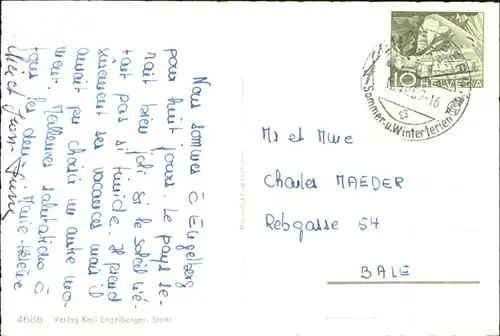 Nous sommes à Engelberg
pour huit jours. Le pays se-
rait bien joli si le soleil n'é-
tait pas si timide. Il prend
sûrement ses vacances mais il
aurait pu choisir un autre mo-
ment. Meilleures salutations à
tous les deux. Marie-Hélène
4686 Verlag Karl Engelberger, Stans
HELVETIA
10
Sommer-u.Winterferien
Mr et Mme
Charles MAEDER
Rebgasse 54
BALE